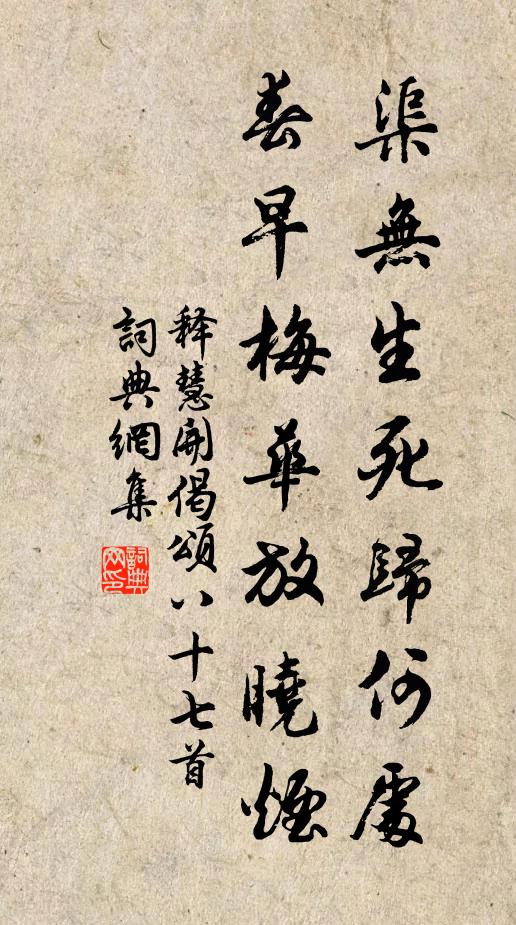 渠無生死歸何處
春早梅華放曉煙
释慧開偈頌八十七首
詞典網集
詞典
网印